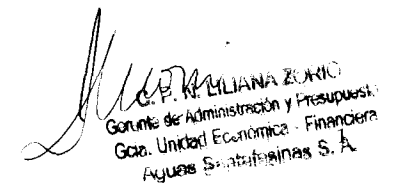 C.P.N. LILIANA ZORIO
Gerente de Administración y Presupuesto
Gcia. Unidad Económica - Financiera
Aguas Santafesinas S. A.